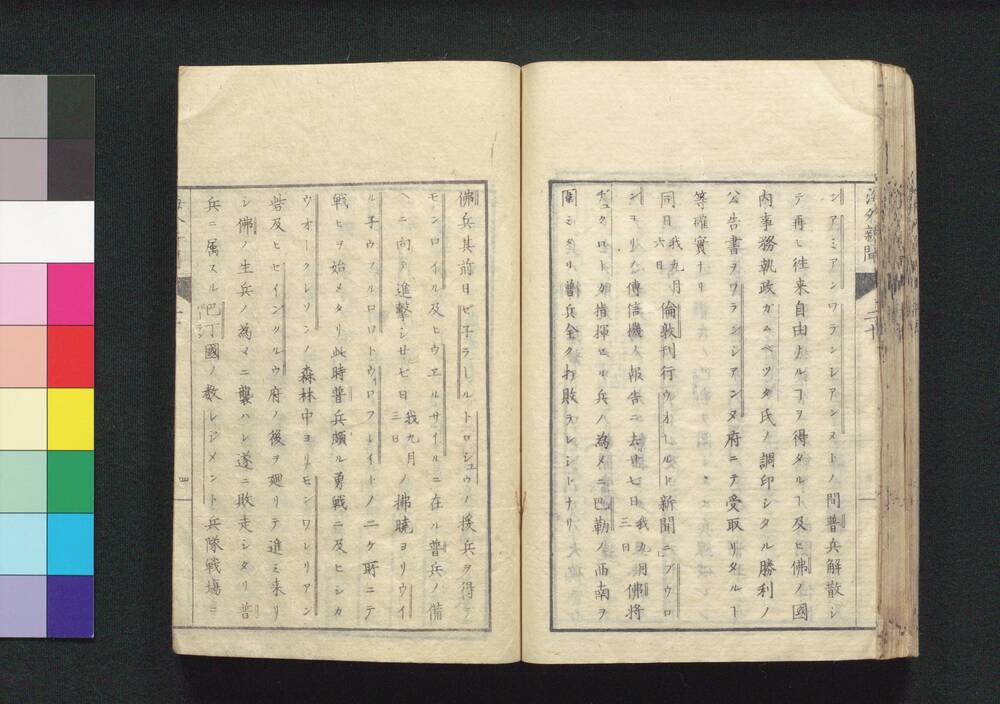 海外新聞
ンアミアンワランシレアンヌトノ間普兵解散シ
テ再ヒ往来自由ナルヿヲ得タルト及ヒ佛ノ國
内事務執政ガムベツタ氏ノ調印シタル勝利ノ
公告書ヲワランシアンヌ府ニテ受取リタルト
等確實ナリ
同日我九月六日倫敦刊行ウオールルド新聞ニブウロ
シヨリノ傳信機ノ報告ニ去廿七日我九月三日佛将
チュクロートガ指揮セルノ兵ノ為メニ巴勒ノ西南ヲ
圍ミタル普兵全ク打敗ラレシトナリ
佛兵其前日ビ子ラールトロシュウノ援兵ヲ得テ
モンロイル及ヒウエルサイルニ在ル普兵ノ備
ヘニ向テ進撃シ廿七日我九月三日ノ拂曉ヨリウイ
ル子ウフルロロトウィロフレイトノ二ケ所ニテ
戦ヒヲ始メタリ此時普兵頗ル勇戦ニ及ヒシカ
ウオークレソンノ森林中ヨリモンワレリアン
砦及ヒセインクルウ府ノ後ヲ廻リテ進ミ来リ
シ佛ノ生兵ノ為マニ襲ハレ遂ニ敗走シタリ普
兵ニ属スル巴丁國ノ数レジメント兵隊戦場ニ
四